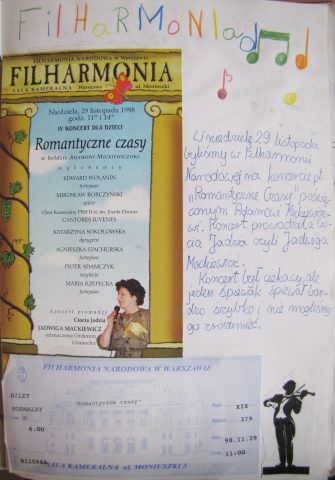 FilHaRMONIada
FILHARMONIA NARODOWA w Warszawie
FILHARMONIA
SALA KAMERALNA Warszawa ul. Moniuszki
Niedziela, 29 listopada 1998
godz. 11⁰⁰ i 14⁰⁰
IV KONCERT DLA DZIECI
Romantyczne czasy
w hołdzie ADAMOWI MICKIEWICZOWI
wykonawcy
EDWARD WOLANIN
fortepian
MIROSŁAW BORCZYŃSKI
śpiew
Chór Kameralny PSM II st. im. Józefa Elsnera
CANTORES IUVENES
KATARZYNA SOKOŁOWSKA
dyrygent
AGNIESZKA STACHURSKA
fortepian
PIOTR ADAMCZYK
recytacje
MARIA RZEPECKA
fortepian
koncert prowadzi
Ciocia Jadzia
JADWIGA MACKIEWICZ
odznaczona Orderem
Uśmiechu
W niedzielę 29 listopada
byliśmy w Filharmonii
Narodowej na koncercie pt.
"Romantyczne Czasy" poświę-
conym Adamowi Mickiewiczo-
wi. Koncert prowadziła Cio-
cia Jadzia czyli Jadwiga
Mackiewicz.
Koncert był ciekawy, ale
jeden śpiewak śpiewał bar-
dzo szybko i nie mogliśmy
go zrozumieć.
FILHARMONIA NARODOWA W WARSZAWIE
BILET
NORMALNY
"Romantyczne czasy"
Rząd XIX
Miejsce 379
Cena zł
6.00
Data 98.11.29
Godz. 11:00
SALA KAMERALNA ul. MONIUSZKI 5